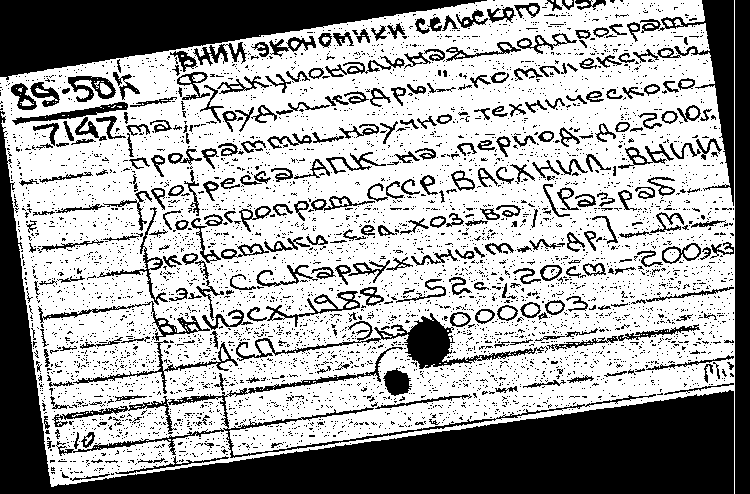 ВНИИ экономики сельского
89-50к
7147
Функциональная подпрограм-
ма „Труд и кадры" комплексной
программы научно-технического
прогресса АПК на период до 2010г.
/ Госагропром СССР, ВАСХНИЛ, ВНИИ
экономики сел. хоз-ва; [Разраб.
к.э.н. С.С. Карпухиным и др.] - М.:
ВНИЭСХ, 1988. - 52с.; 20см. - 200экз
ДСП. Экз. 000003.
10